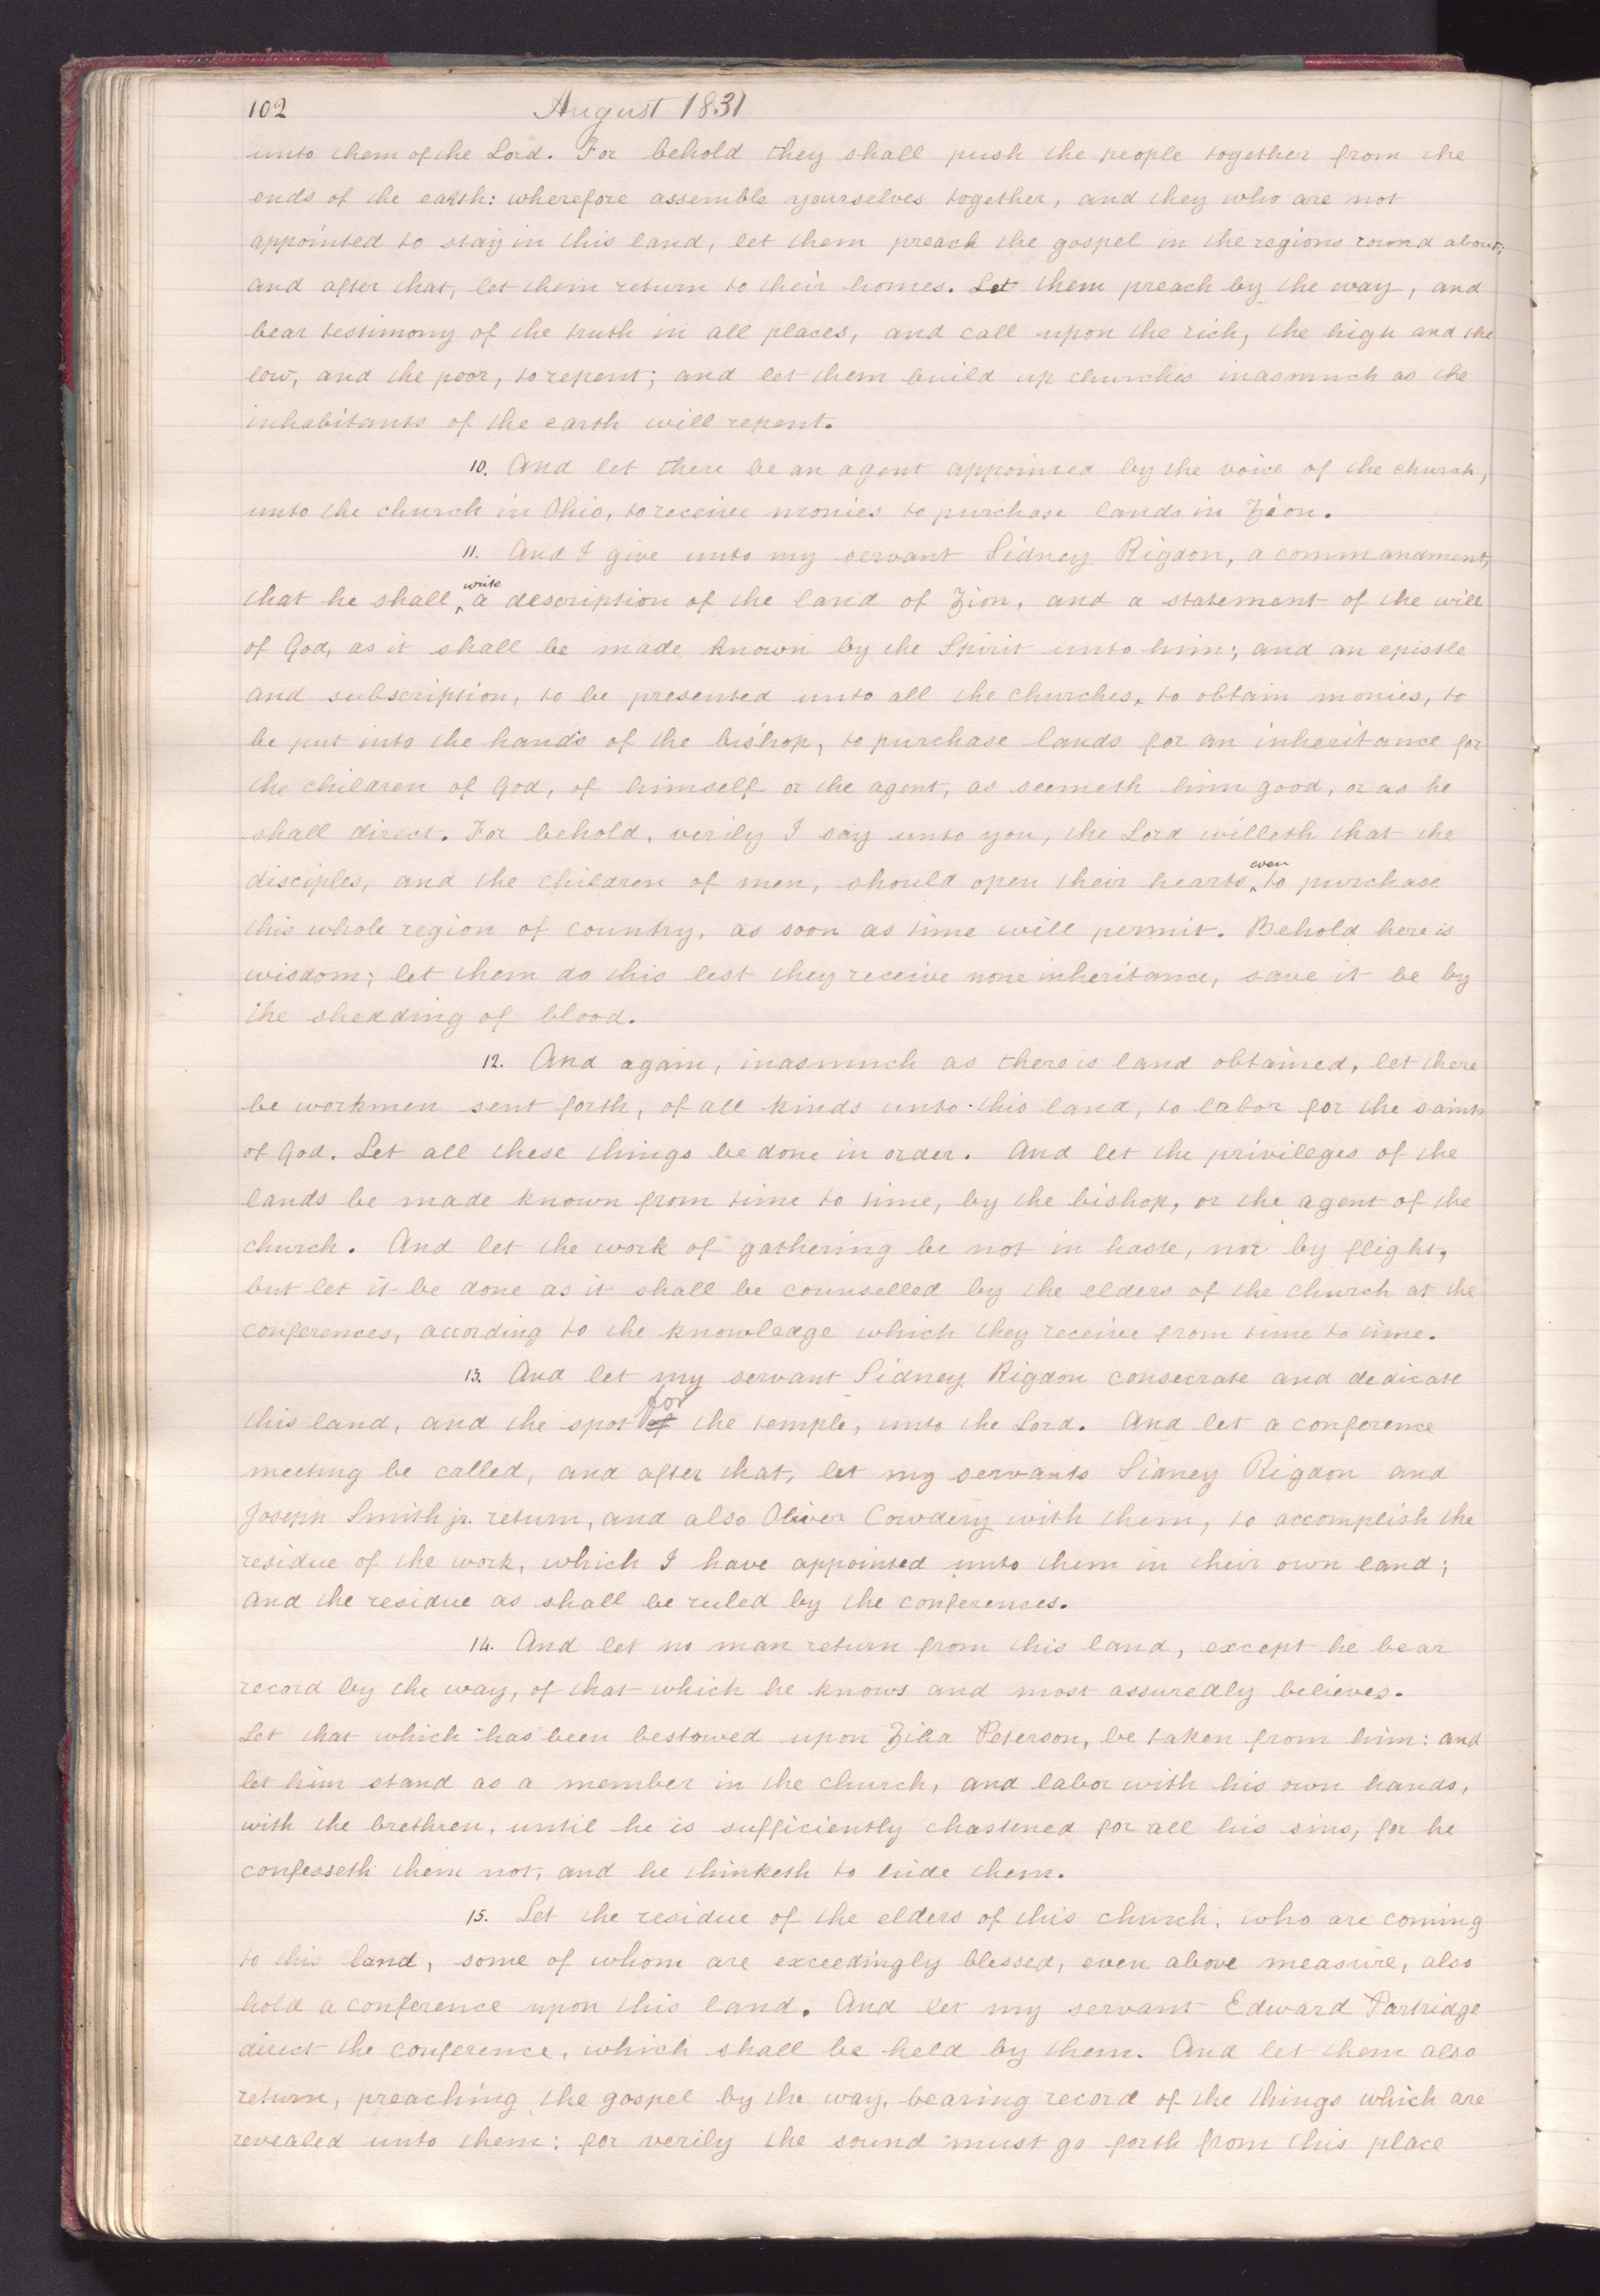 102 August 1831
unto them of the Lord. For behold they shall push the people together from the
ends of the earth: wherefore assemble yourselves together, and they who are not
appointed to stay in this land, let them preach the gospel in the regions round about;
and after that, let them return to their homes. Let them preach by the way, and
bear testimony of the truth in all places, and call upon the rich, the high and the
low, and the poor, to repent; and let them build up churches inasmuch as the
inhabitants of the earth will repent.
10. And let there be an agent appointed by the voice of the church,
unto the church in Ohio, to receive monies to purchase lands in Zion.
11. And I give unto my servant Sidney Rigdon, a commandment,
that he shall ^write a description of the land of Zion, and a statement of the will
of God, as it shall be made known by the Spirit unto him; and an epistle
and subscription, to be presented unto all the churches, to obtain monies, to
be put into the hands of the bishop, to purchase lands for an inheritance for
the children of God, of himself or the agent, as seemeth him good, or as he
shall direct. For behold, verily I say unto you, the Lord willeth that the
disciples, and the children of men, should open their hearts, ^even to purchase
this whole region of country, as soon as time will permit. Behold here is
wisdom; let them do this lest they receive none inheritance, save it be by
the shedding of blood.
12. And again, inasmuch as there is land obtained, let there
be workmen sent forth, of all kinds unto this land, to labor for the saints
of God. Let all these things be done in order. And let the privileges of the
lands be made known from time to time, by the bishop, or the agent of the
church. And let the work of gathering be not in haste, nor by flight,
but let it be done as it shall be counselled by the elders of the church at the
conferences, according to the knowledge which they receive from time to time.
13. And let my servant Sidney Rigdon consecrate and dedicate
this land, and the spot of for the temple, unto the Lord. And let a conference
meeting be called, and after that, let my servants Sidney Rigdon and
Joseph Smith jr. return, and also Oliver Cowdery with them, to accomplish the
residue of the work, which I have appointed unto them in their own land;
and the residue as shall be ruled by the conferences.
14. And let no man return from this land, except he bear
record by the way, of that which he knows and most assuredly believes.
Let that which has been bestowed upon Ziba Peterson, be taken from him: and
let him stand as a member in the church, and labor with his own hands,
with the brethren, until he is sufficiently chastened for all his sins, for he
confesseth them not, and he thinketh to hide them.
15. Let the residue of the elders of this church, who are coming
to this land, some of whom are exceedingly blessed, even above measure, also
hold a conference upon this land. And let my servant Edward Partridge
direct the conference, which shall be held by them. And let them also
return, preaching the gospel by the way, bearing record of the things which are
revealed unto them: for verily the sound must go forth from this place